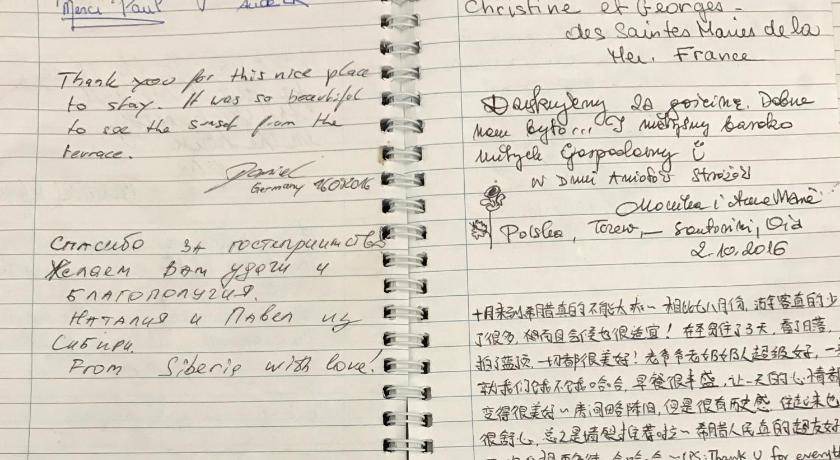 Merci Paul
Thank you for this nice place
to stay. It was so beautiful
to see the sunset from the
terrace.
Daniel
Germany 16092016
Спасибо за гостеприимство
Желаем вам удачи и
благополучия.
Наталия и Павел из
Сибири.
From Siberia with love!
Christine et Georges -
des Saintes Maries de la
Mer. France
Dziękujemy za gościnę. Dobrze
nam było... I mieliśmy bardzo
miłych Gospodarzy
W Dniu Aniołów Stróżów
Polska, Tczew, – Santorini, Oia
2.10.2016
十月来到希腊真的不能太爽~相比七八月份,游客真的少
了很多,而且会很适宜!在这住了3天,看日落,
拍了蓝顶,一切都很美好!老爷爷老奶奶人超级好,一
我们饿不饿哈哈,早餐很丰盛,让一天的心情都
变得很美好~房间略陈旧,但是很有历史感,住起来也
很舒心,总之是墙裂推荐啦~希腊人民真的超友好
Thank U for everyth